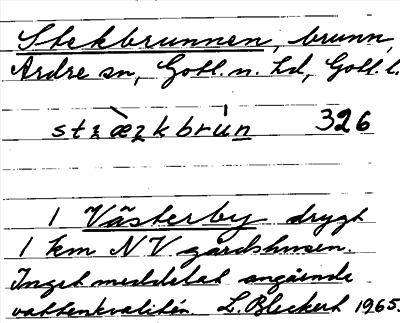 Stekbrunnen, brunn,
Ardre sn, Gotl. n. hd, Gotl. l.
strækbrún 326
I Västerby drygt
1 km NV gårdshusen.
Inget meddelat angående
vattenkvalitén. L. Bleckert 1965.